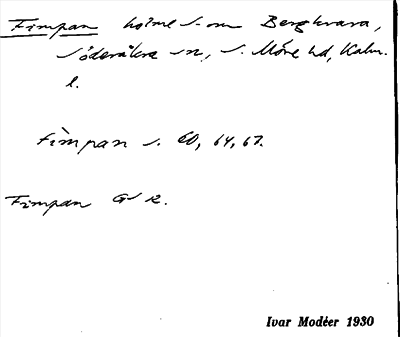 Fimpan holme s. om Bergkvara,
Söderåkra sn, S. Möre hd, Kalm.
l.
Fìmpan s. 60, 64, 67.
Fimpan GV R.
Ivar Modéer 1930